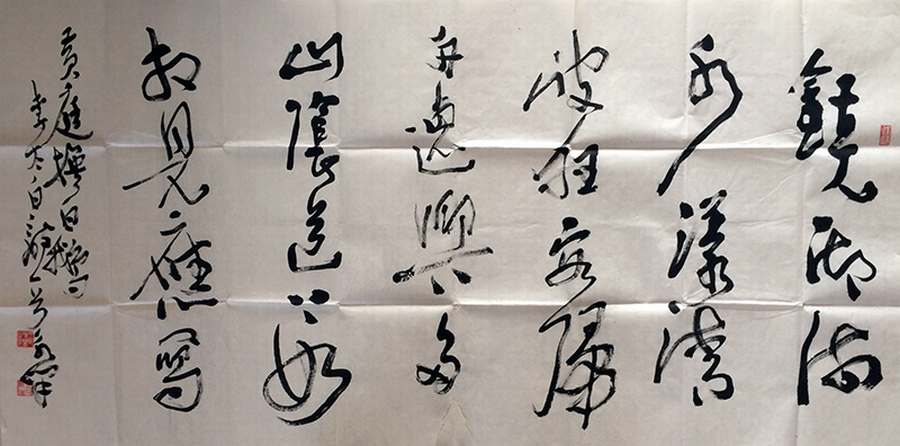 鏡湖流
水漾清
波狂客歸
舟逸興多
山陰道士如
相見應寫
黃庭換白鵝
李太白詩一首